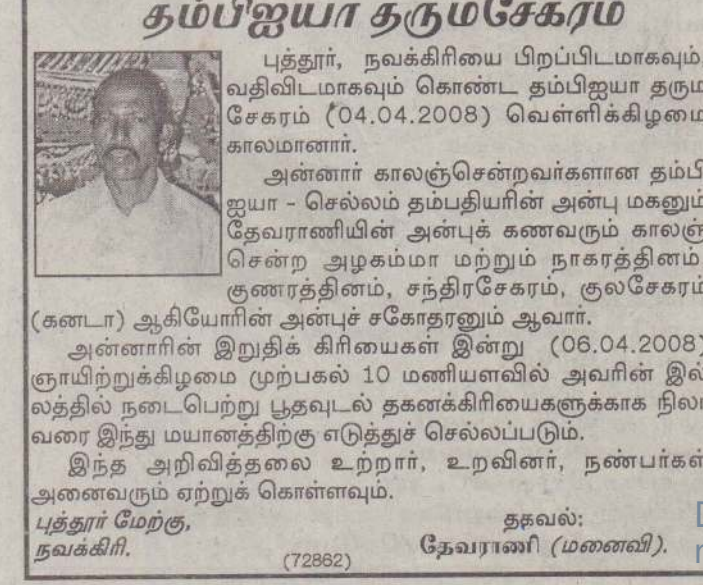 தம்பிஐயா தருமசேகரம்
புத்தூர், நவக்கிரியை பிறப்பிடமாகவும்,
வதிவிடமாகவும் கொண்ட தம்பிஐயா தரும
சேகரம் (04.04.2008) வெள்ளிக்கிழமை
காலமானார்.
அன்னார் காலஞ்சென்றவர்களான தம்பி
ஐயா - செல்லம் தம்பதியரின் அன்பு மகனும்
தேவராணியின் அன்புக் கணவரும் காலஞ்
சென்ற அழகம்மா மற்றும் நாகரத்தினம்
குணரத்தினம், சந்திரசேகரம், குலசேகரம்
(கனடா) ஆகியோரின் அன்புச் சகோதரனும் ஆவார்.
அன்னாரின் இறுதிக் கிரியைகள் இன்று (06.04.2008)
ஞாயிற்றுக்கிழமை முற்பகல் 10 மணியளவில் அவரின் இல்
லத்தில் நடைபெற்று பூதவுடல் தகனக்கிரியைகளுக்காக நிலா
வரை இந்து மயானத்திற்கு எடுத்துச் செல்லப்படும்.
இந்த அறிவித்தலை உற்றார், உறவினர், நண்பர்கள்
அனைவரும் ஏற்றுக் கொள்ளவும்.
புத்தூர் மேற்கு, தகவல்:
நவக்கிரி. (72862) தேவராணி (மனைவி).